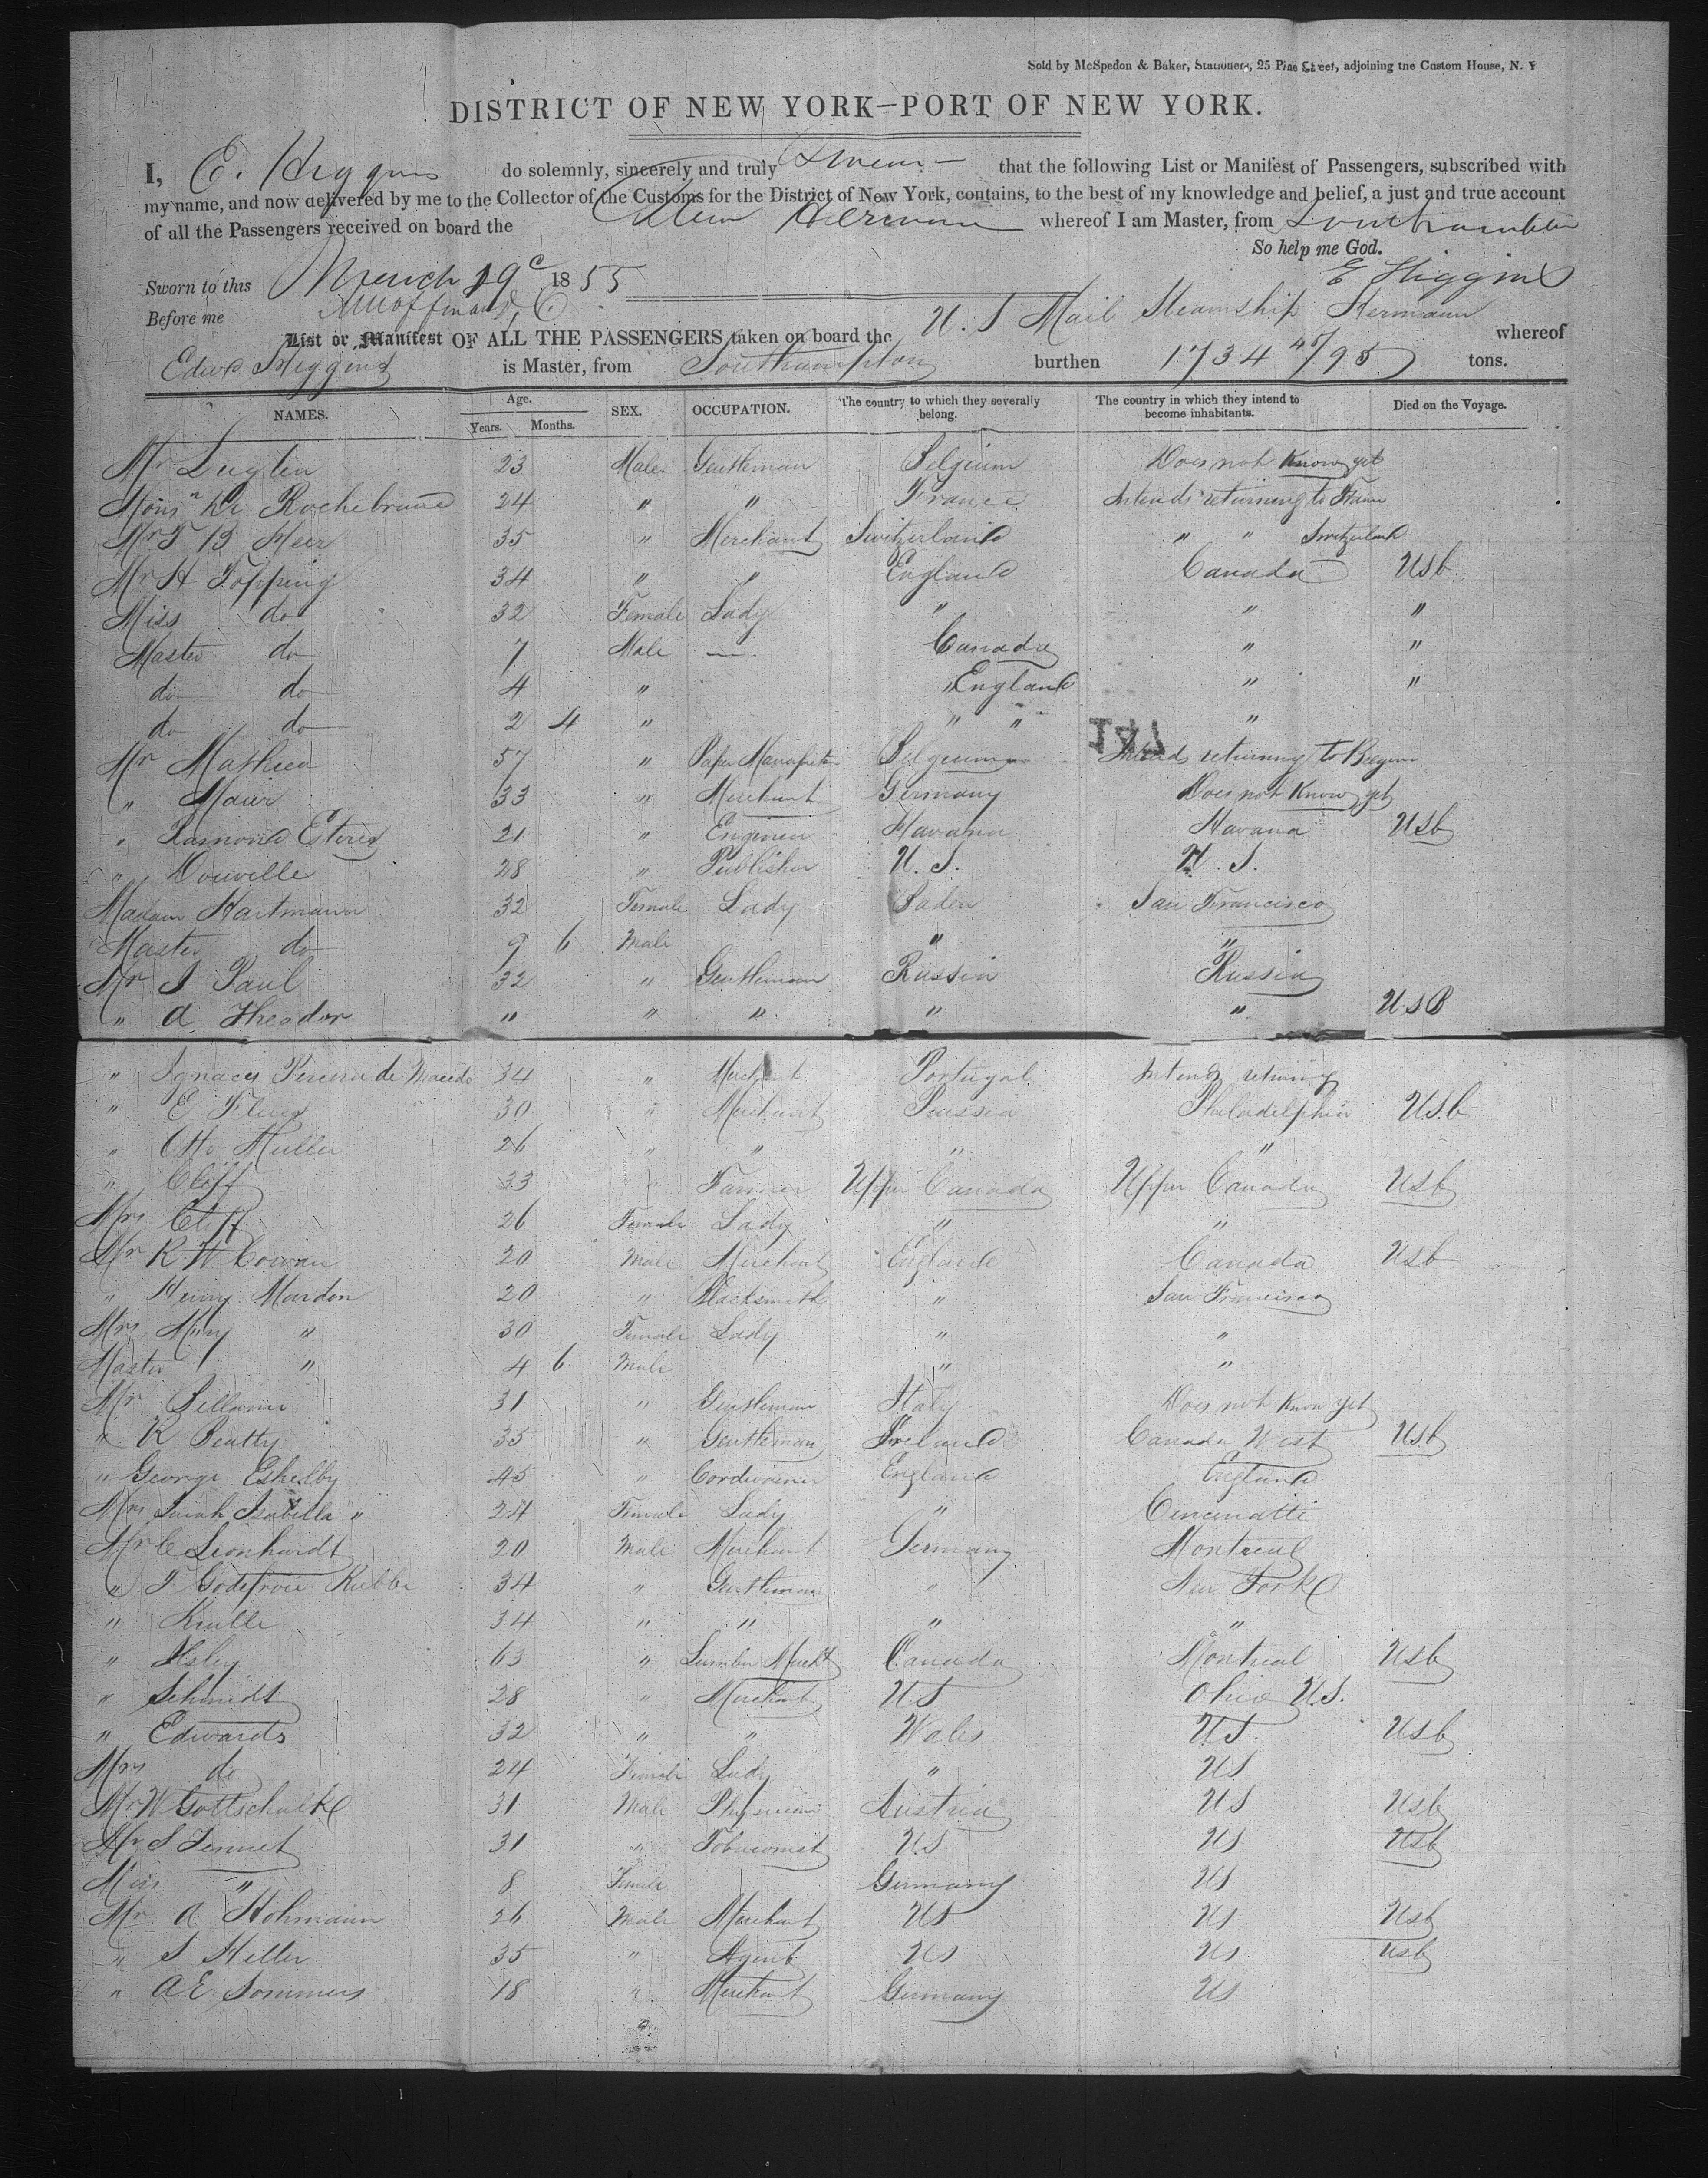 Sold by McSpedon & Baker, Stationers, 25 Pine Street, adjoining the Custom House, N. Y
DISTRICT OF NEW YORK—PORT OF NEW YORK.
I, E. Higgins do solemnly, sincerely and truly Swear that the following List or Manifest of Passengers, subscribed with
my name, and now delivered by me to the Collector of the Customs for the District of New York, contains, to the best of my knowledge and belief, a just and true account
of all the Passengers received on board the Herman whereof I am Master, from Southampton
So help me God.
Sworn to this March 19 1855 E Higgins
Before me
List or Manifest OF ALL THE PASSENGERS taken on board the U. S Mail Steamship Hermann whereof
Edwd Higgins is Master, from Southampton burthen 1734 45/95 tons.
NAMES. Age. Years. Months. SEX. OCCUPATION. The country to which they severally belong. The country in which they intend to become inhabitants. Died on the Voyage.
Mr Luglen 23 Male Gentleman Belgium Does not Know yet
Monsr De Rochebrune 24 " " France Intends returning to France
Mr T B Heer 35 " Merchant Switzerland " " Switzerland
Mr H Topping 34 " " England Canada USb
Miss do 32 Female Lady " " "
Master do 7 Male — Canada " "
do do 4 " " England " "
do do 2 4 " " " "
Mr Mathieu 57 " Paper Manufactr Belgium Intends returning to Belgium
" Maier 33 " Merchant Germany Does not Know yet
" 21 " Engineer Havana Havana USb
" Douville 28 " Publisher U. S. U. S.
Madam Hartmann 32 Female Lady Baden San Francisco
Master do 9 6 Male " "
Mr S Paul 32 " Gentleman Russia Russia
" A. Theodor " " " " " USB
" Ignacy Pereira de Macedo 34 " Merchant Portugal Intends returning
" E 30 " Merchant Prussia Philadelphia USb
" Otto Muller 26 " " " "
" Cliff 33 " Farmer Upper Canada Upper Canada USb
Mrs Cliff 26 Female Lady " "
Mr R W Cowan 20 Male Merchant England Canada USb
" Henry Mardon 20 " Blacksmith " San Francisco
Mrs Mary " 30 Female Lady " "
Master " 4 6 Male " "
Mr Bellamii 31 " Gentleman Italy Does not Know yet
" R Beatty 35 " Gentleman Ireland Canada West USb
" George Eshelby 45 " Cordwainer England England
Mrs Sarah Isabella " 24 Female Lady " Cincinatti
Mr C Leonhardt 20 Male Merchant Germany Montreal
" F. Godefroie Rubbe 34 " Gentleman " New York
" Krulle 34 " " " "
" Ilsley 63 " Lumber Mercht Canada Montreal USb
" Schmidt 28 " Merchant US Ohio US.
" Edwards 32 " " Wales US. USb
Mrs do 24 Female Lady " US
Mr W Gottschalk 31 Male Physician Austria US USb
Mr S Tennet 31 " Tobaconist US US USb
Miss " 8 Female Germany US
Mr A Hohmann 26 Male Merchant US US USb
" S Heller 35 " Agent US US USb
" A E Sommers 18 " Merchant Germany US